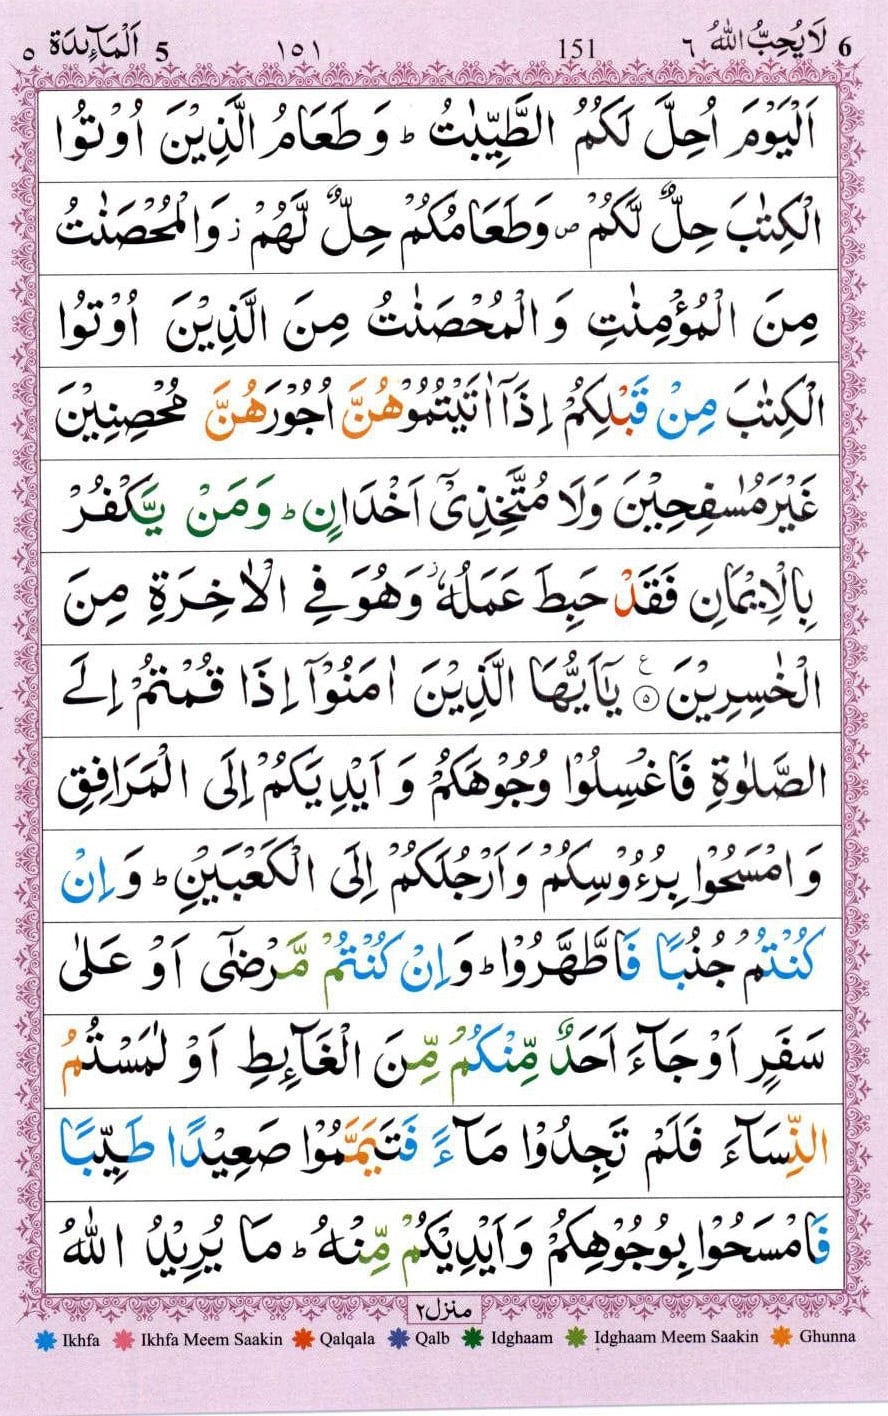 اَلْمَآئِدَة ٥ 5 ١٥١ 151 لَا يُحِبُّ اللّٰهُ ٦ 6
اَلْيَوْمَ اُحِلَّ لَكُمُ الطَّيِّبٰتُ ؕ وَ طَعَامُ الَّذِيْنَ اُوْتُوا
الْكِتٰبَ حِلٌّ لَّكُمْ ۪ وَطَعَامُكُمْ حِلٌّ لَّهُمْ ز وَالْمُحْصَنٰتُ
مِنَ الْمُؤْمِنٰتِ وَ الْمُحْصَنٰتُ مِنَ الَّذِيْنَ اُوْتُوا
الْكِتٰبَ مِنْ قَبْلِكُمْ اِذَاۤ اٰتَيْتُمُوْهُنَّ اُجُوْرَهُنَّ مُحْصِنِيْنَ
غَيْرَ مُسٰفِحِيْنَ وَلَا مُتَّخِذِيْۤ اَخْدَانٍ ؕ وَمَنْ يَّكْفُرْ
بِالْاِيْمَانِ فَقَدْ حَبِطَ عَمَلُهٗ ز وَهُوَ فِي الْاٰخِرَةِ مِنَ
الْخٰسِرِيْنَ ۝٥ ع يٰۤاَيُّهَا الَّذِيْنَ اٰمَنُوْۤا اِذَا قُمْتُمْ اِلَى
الصَّلٰوةِ فَاغْسِلُوْا وُجُوْهَكُمْ وَ اَيْدِيَكُمْ اِلَى الْمَرَافِقِ
وَ امْسَحُوْا بِرُءُوْسِكُمْ وَاَرْجُلَكُمْ اِلَى الْكَعْبَيْنِ ؕ وَ اِنْ
كُنْتُمْ جُنُبًا فَاطَّهَّرُوْا ؕ وَ اِنْ كُنْتُمْ مَّرْضٰۤى اَوْ عَلٰى
سَفَرٍ اَوْ جَآءَ اَحَدٌ مِّنْكُمْ مِّنَ الْغَآئِطِ اَوْ لٰمَسْتُمُ
النِّسَآءَ فَلَمْ تَجِدُوْا مَآءً فَتَيَمَّمُوْا صَعِيْدًا طَيِّبًا
فَامْسَحُوْا بِوُجُوْهِكُمْ وَ اَيْدِيْكُمْ مِّنْهُ ؕ مَا يُرِيْدُ اللّٰهُ
منزل ٢
Ikhfa Ikhfa Meem Saakin Qalqala Qalb Idghaam Idghaam Meem Saakin Ghunna